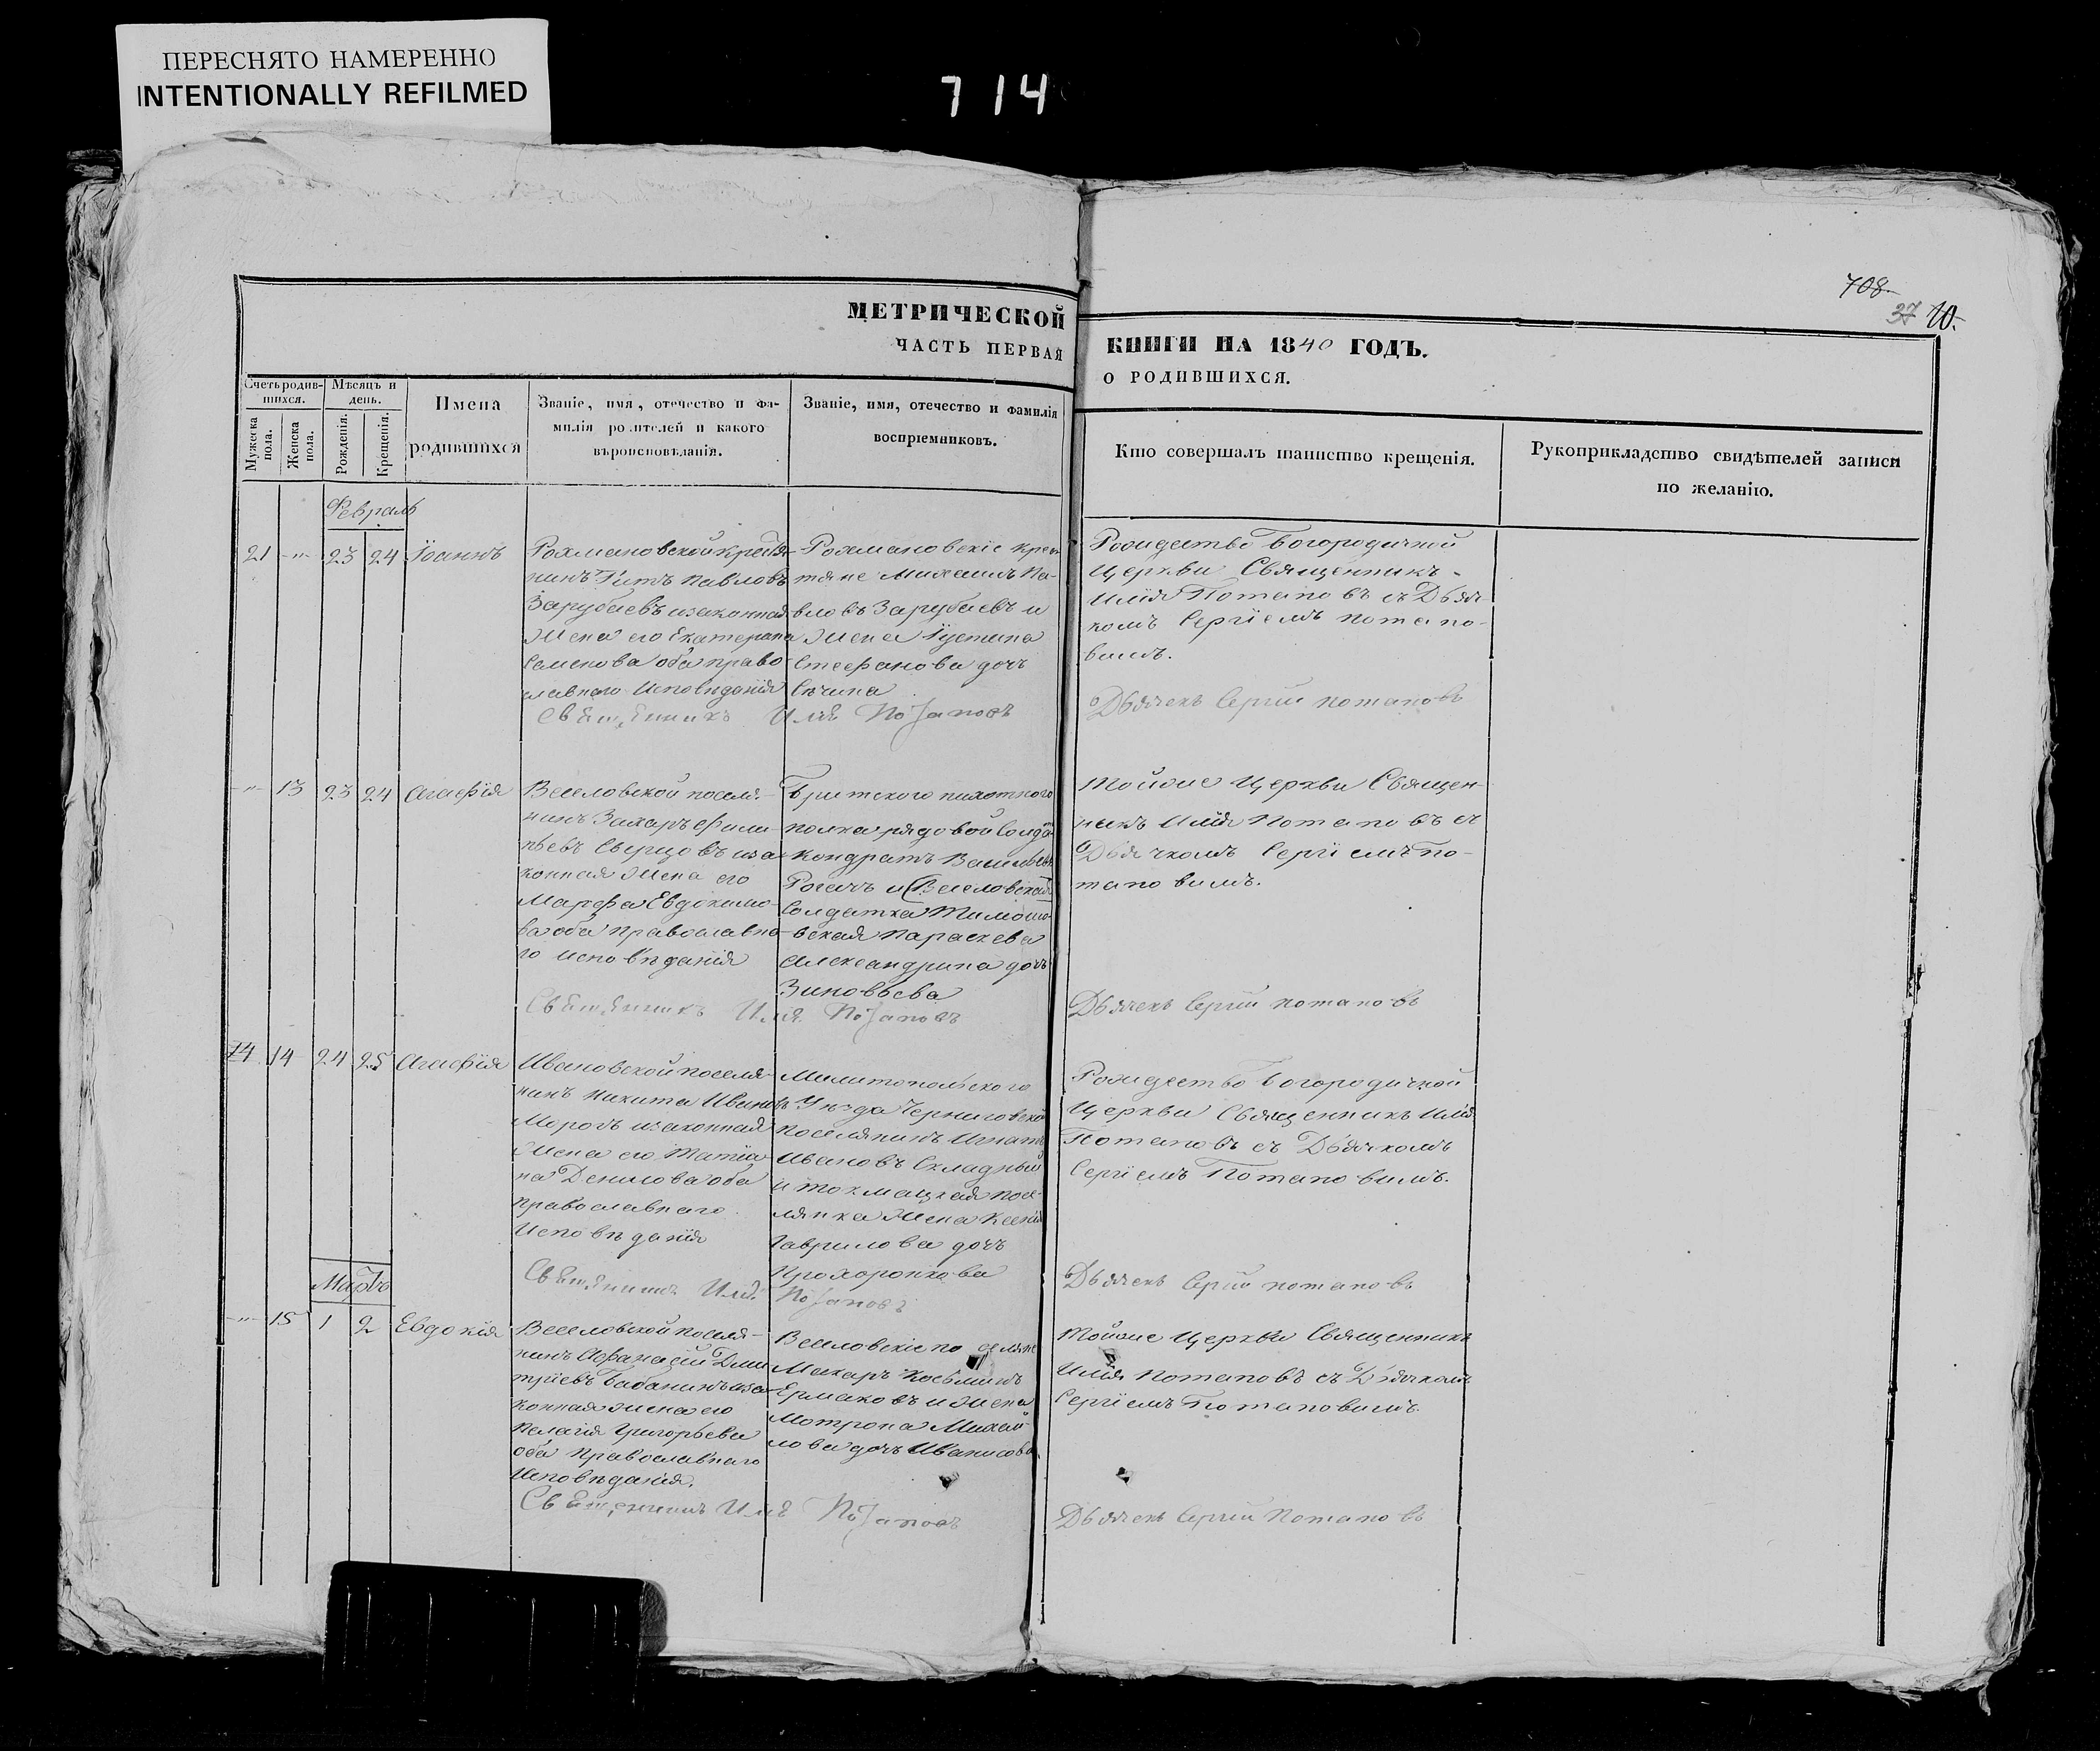 ПЕРЕСНЯТО НАМЕРЕННО
INTENTIONALLY REFILMED
714
708
37 10.
МЕТРИЧЕСКОЙ
ЧАСТЬ ПЕРВАЯ
КНИГИ НА 1840 ГОДЪ.
О РОДИВШИХСЯ.
Счетъ родив-
шихся.
Мужеска
пола.
Женска
пола.
Мѣсяцъ и
день.
Рожденія.
Крещенія.
Имена
родившихся
Званіе, имя, отечество и фа-
милія родителей и какого
вѣроисповѣданія.
Званіе, имя, отечество и фамилія
воспріемниковъ.
Кто совершалъ таинство крещенія.
Рукоприкладство свидѣтелей записи
по желанію.
Февраль
21 -"- 23 24 Іоаннъ
Рохмановской крестья-
нинъ Титъ Павловъ
Зарубаевъ изаконная
Жена его Екатерина
Семенова оба право-
славнаго Исповѣданія
Рохмановскіе крес-
тяне Михаилъ Па-
вловъ Зарубаевъ и
Жена Іустина
Стефанова дочь
Рождество Богородичной
Церкви Священникъ
Илія Потаповъ съ Дьяч-
комъ Сергіемъ Потапо-
вимъ.
Священникъ Илія Потаповъ
Дьячекъ Сергій Потаповъ
-"- 13 23 24 Агафія
Веселовской поселя-
нинъ Захаръ Фили-
пьевъ Сверцовъ иза-
конная Жена его
Марфа Евдокимо-
ва оба православна-
го исповѣданія
пихотного
полка рядовой Солдатъ
Кондратъ Васильевъ
Рогачъ и Веселовская
Солдатка Тимошо-
вская Параскева
Александрина дочь
Зиновьева
Тойже Церкви Священ-
никъ Илія Потаповъ съ
Дьячкомъ Сергіемъ По-
таповимъ.
Священникъ Илія Потаповъ
Дьячекъ Сергій Потаповъ
14 14 24 25 Агафія
Ивановской поселя-
нинъ Никита Ивановъ
изаконная
Жена его Татіа-
на Денилова оба
православнаго
Исповѣданія
Милитопольского
Уѣзда Черниговской
поселянинъ Игнатъ
Ивановъ Складный
и токмацкая посе-
лянка Жена Ксенія
Гаврилова дочь
Прохоронкова
Рождество Богородичной
Церкви Священникъ Илія
Потаповъ съ Дьячкомъ
Сергіемъ Потаповимъ.
Священникъ Илія Потаповъ
Дьячекъ Сергій Потаповъ
Мартъ
-"- 15 1 2 Евдокія
Веселовской поселя-
нинъ Афанасій Дми-
тріевъ Бабанинъ иза-
конная жена его
Пелагія Григорьева
оба православнаго
Исповѣданія.
Веселовскіе поселяне
Макаръ Косьминъ
Ермаковъ и Жена
Мотрона Михай-
лова дочь Иванисова
Тойже Церкви Священникъ
Илія Потаповъ съ Дьячкомъ
Сергіемъ Потаповимъ.
Священникъ Илія Потаповъ
Дьячекъ Сергій Потаповъ